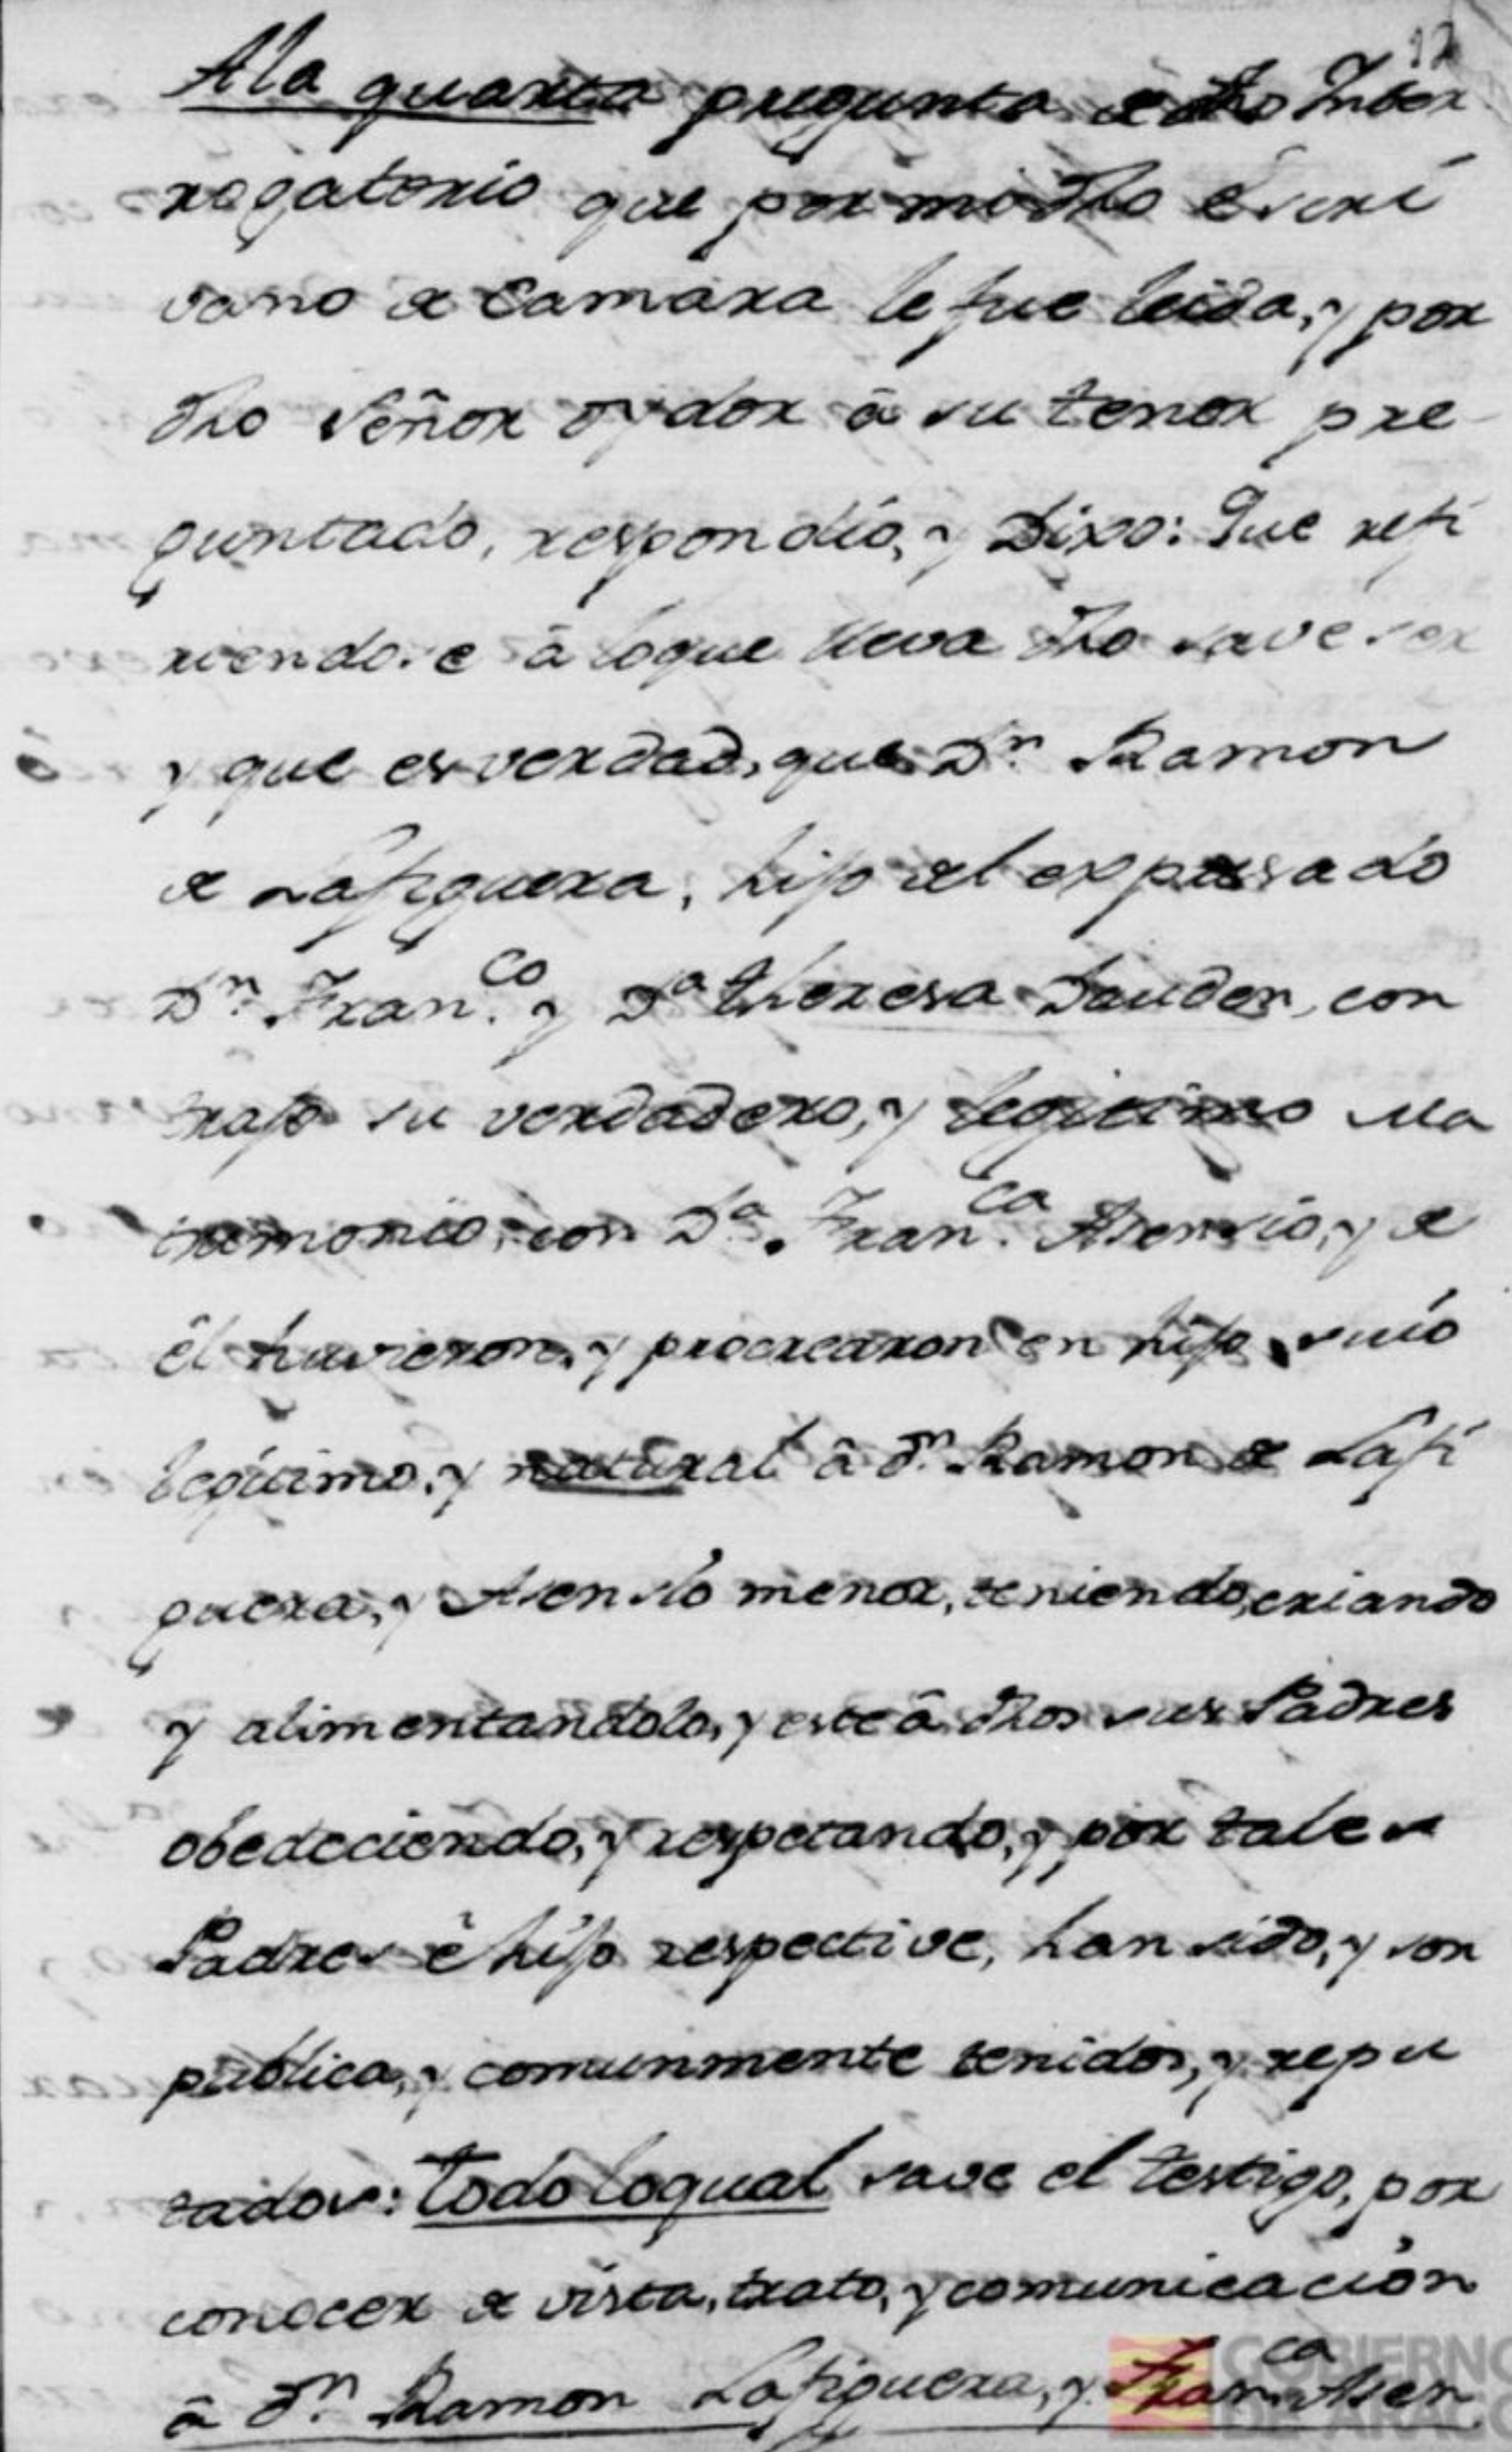 12
A la quarta pregunta de dho Inter
rogatorio que por mi dho Escri
vano de Camara le fue leida, y por
dho Señor oydor â su tenor pre
guntado, respondió, y Dixo: Que refi
riendose â loque lleva dho save ser
y que es verdad, que Dn Ramon
de Lafiguera, hijo del expresado
Dn Franco y Da theresa Dauden, con
trajo su verdadero, y legitimo Ma
trimonio, con Da Franca Asensio, y de
êl huvieron, y procrearon en hijo suio
legitimo, y natural â Dn Ramon de Lafi
guera, y Asensio menor, teniendo, criando
y alimentandolo, y este â dhos sus Padres
obedeciendo, y respetando, y por tales
Padres ê hijo respective, han sido, y son
publica, y comunmente tenidos, y repu
tados: todo loqual save el testigo, por
conocer de vista, trato, y comunicación
â Dn Ramon Lafiguera, y Franca Asen
GOBIERNO
DE ARAGO